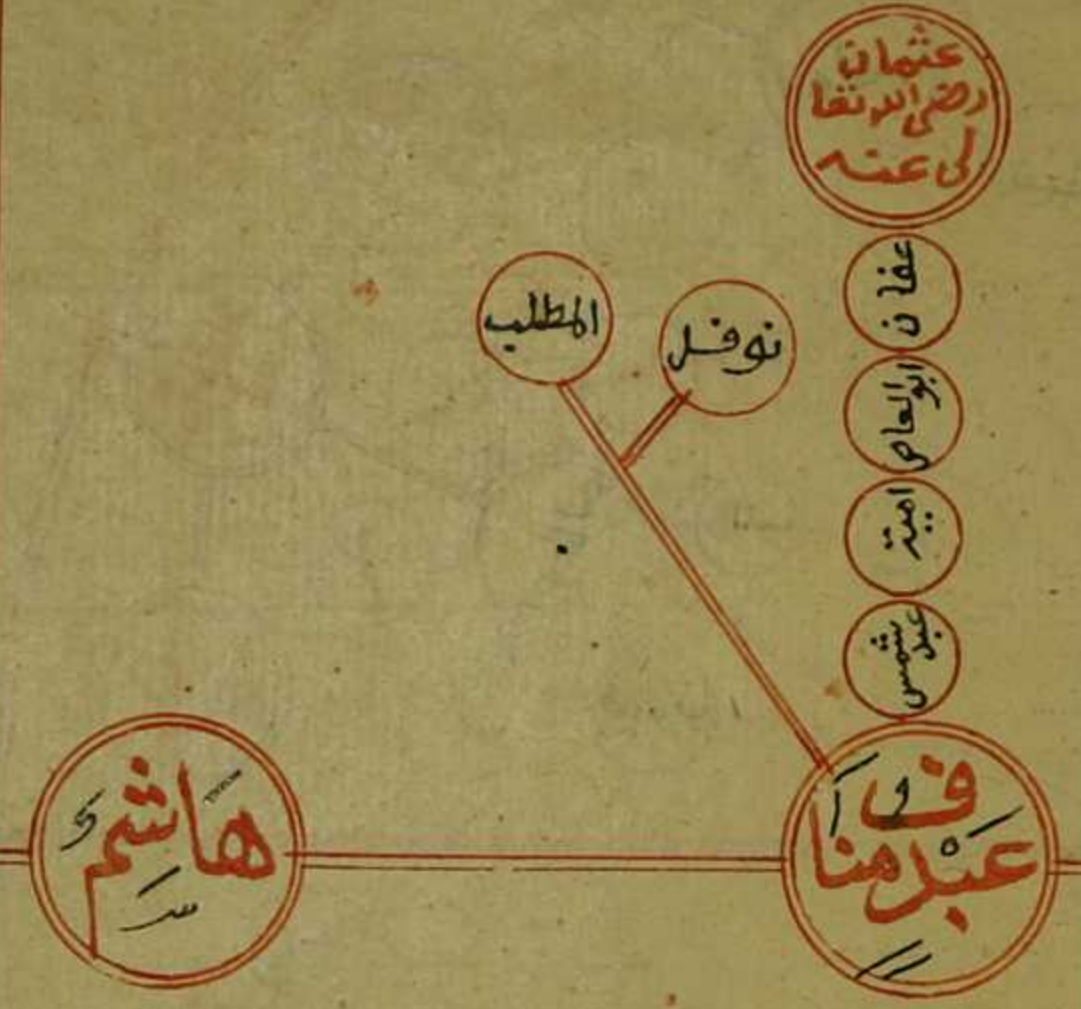 عثمان
رضى الله تعا
لى عنه
عفان
ابوالعاص
امية
عبد شمس
نوفل
المطلب
عَبْد منَاف
هَاشم